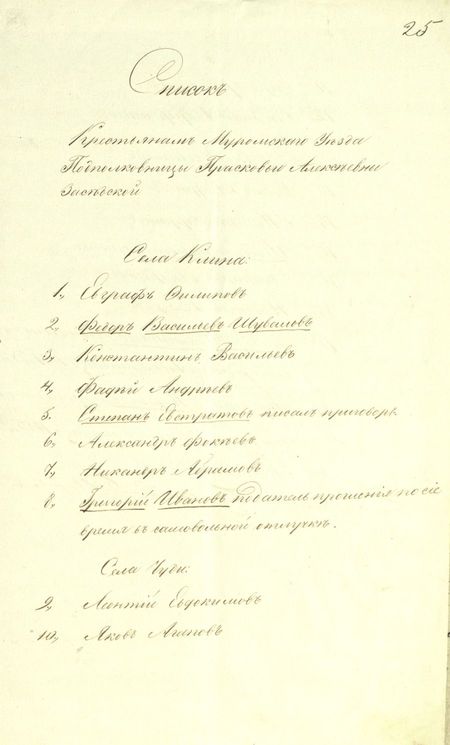 25
Списокъ
Крестьянамъ Муромскаго Уѣзда
Подполковницы Прасковьи Алексѣевны
Засѣсткой
Села Клина:
1, Евграфъ Филиповъ
2, Федоръ Васильевъ Шуваловъ
3, Константинъ Васильевъ
4, Фадѣй Андрѣевъ
5, Степанъ Евстратовъ писалъ приговоръ.
6, Александръ Фокѣевъ
7, Никаноръ Абрамовъ
8, Григорій Ивановъ податель прошенія по сіе
время въ самовольной отлучкѣ.
Села
9, Леонтій Евдокимовъ
10, Яковъ Агаповъ